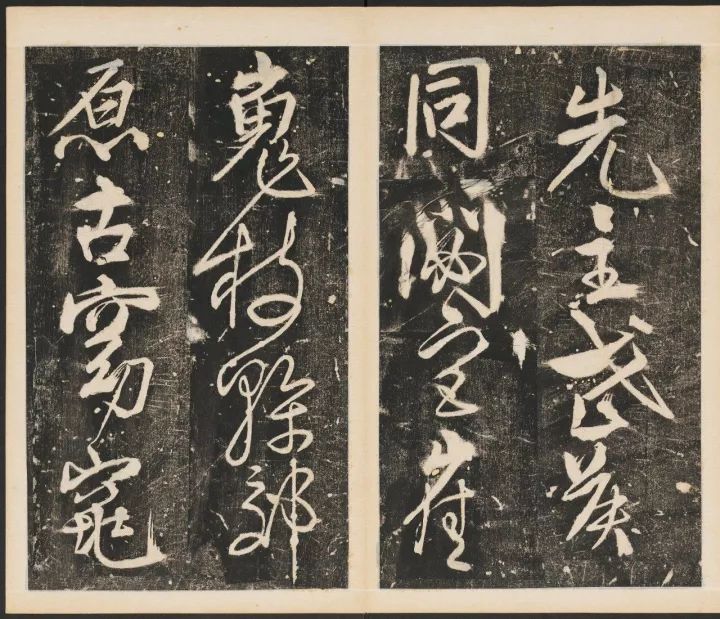 先主武侯
同閟宮崔
嵬枝幹郊
原古窈窕